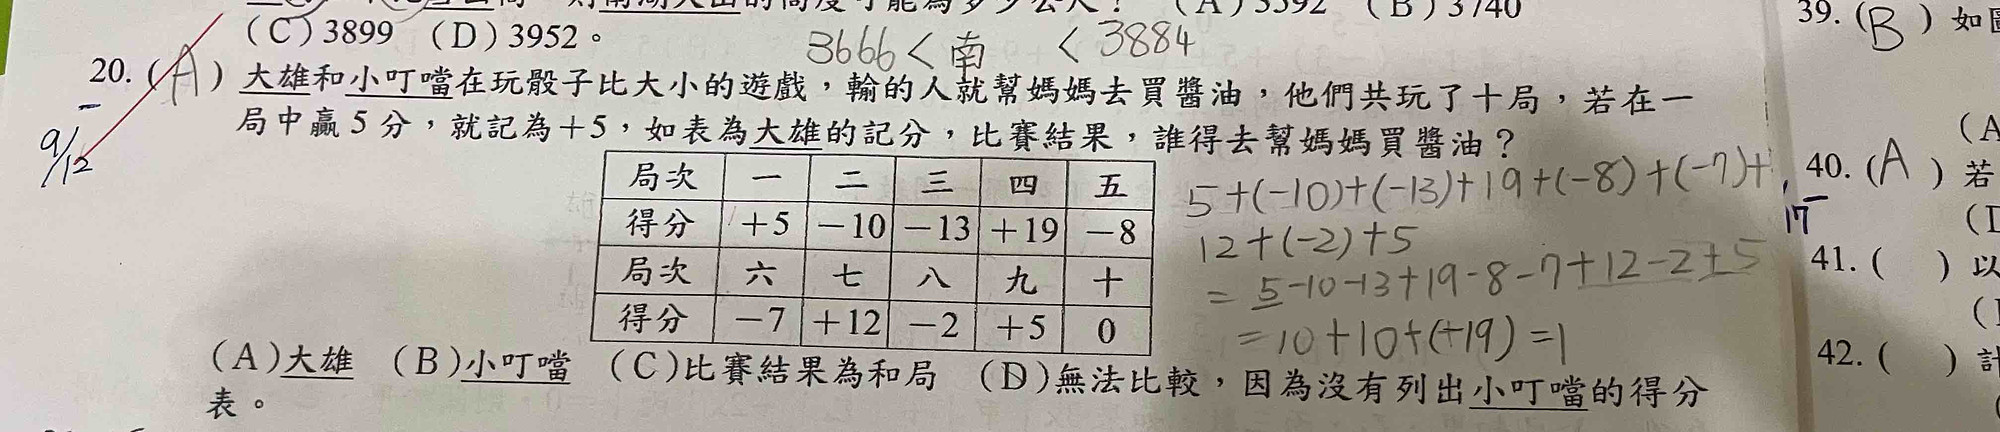 (C)3899 (D)3952。
3666<南 <3884
20.(A)大雄和小叮噹在玩骰子比大小的遊戲，輸的人就幫媽媽去買醬油，他們共玩了十局，若在一
局中贏5分，就記為+5，如表為大雄的記分，比賽結果，誰得去幫媽媽買醬油？
9/12
局次 一 二 三 四 五
得分 +5 −10 −13 +19 −8
局次 六 七 八 九 十
得分 −7 +12 −2 +5 0
5+(-10)+(-13)+19+(-8)+(-7)+
12+(-2)+5
=5-10-13+19-8-7+12-2+5
=10+10+(+19)=1
(A)大雄 (B)小叮噹 (C)比賽結果為和局 (D)無法比較，因為沒有列出小叮噹的得分
表。
39.(B)如
(A
40.(A)若
17
41.( )以
42.( )計